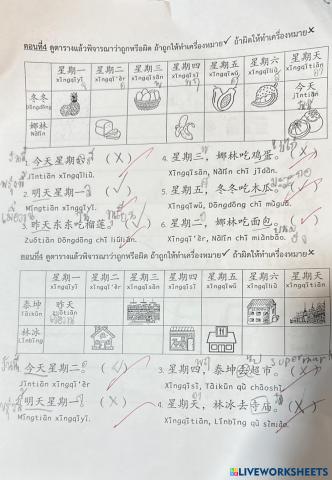 ตอนที่4 ดูตารางแล้วพิจารณาว่าถูกหรือผิด ถ้าถูกให้ทำเครื่องหมาย✓ ถ้าผิดให้ทำเครื่องหมาย✗
星期一 星期二 星期三 星期四 星期五 星期六 星期天
xīngqīyī xīngqī'èr xīngqīsān xīngqīsì xīngqīwǔ xīngqīliù xīngqītiān
冬冬 今天
Dōngdōng jīntiān
娜林
Nàlín
今天星期六 (X) 4. 星期三, 娜林吃鸡蛋。 (X)
Jīntiān xīngqīliù. Xīngqīsān, Nàlín chī jīdàn.
2. 明天星期一。 (✓) 5. 星期五, 冬冬吃木瓜。 (✓)
Míngtiān xīngqīyī. Xīngqīwǔ, Dōngdōng chī mùguā.
3. 昨天东东吃榴莲。 (✓) 6. 星期二, 娜林吃面包。 (✓)
Zuótiān Dōngdōng chī liúlián. Xīngqī'èr, Nàlín chī miànbāo.
ตอนที่4 ดูตารางแล้วพิจารณาว่าถูกหรือผิด ถ้าถูกให้ทำเครื่องหมาย✓ ถ้าผิดให้ทำเครื่องหมาย✗
星期一 星期二 星期三 星期四 星期五 星期六 星期天
xīngqīyī xīngqī'èr xīngqīsān xīngqīsì xīngqīwǔ xīngqīliù xīngqītiān
泰坤 昨天
Tàikūn zuótiān
林冰
Línbīng
今天星期二。 (✓) 3. 星期四, 泰坤去超市。 (X)
Jīntiān xīngqī'èr. Xīngqīsì, Tàikūn qù chāoshì.
明天星期一。 (X) 4. 星期天, 林冰去寺庙。 (X)
Míngtiān xīngqīyī. Xīngqītiān, Línbīng qù sìmiào.
LIVEWORKSHEETS